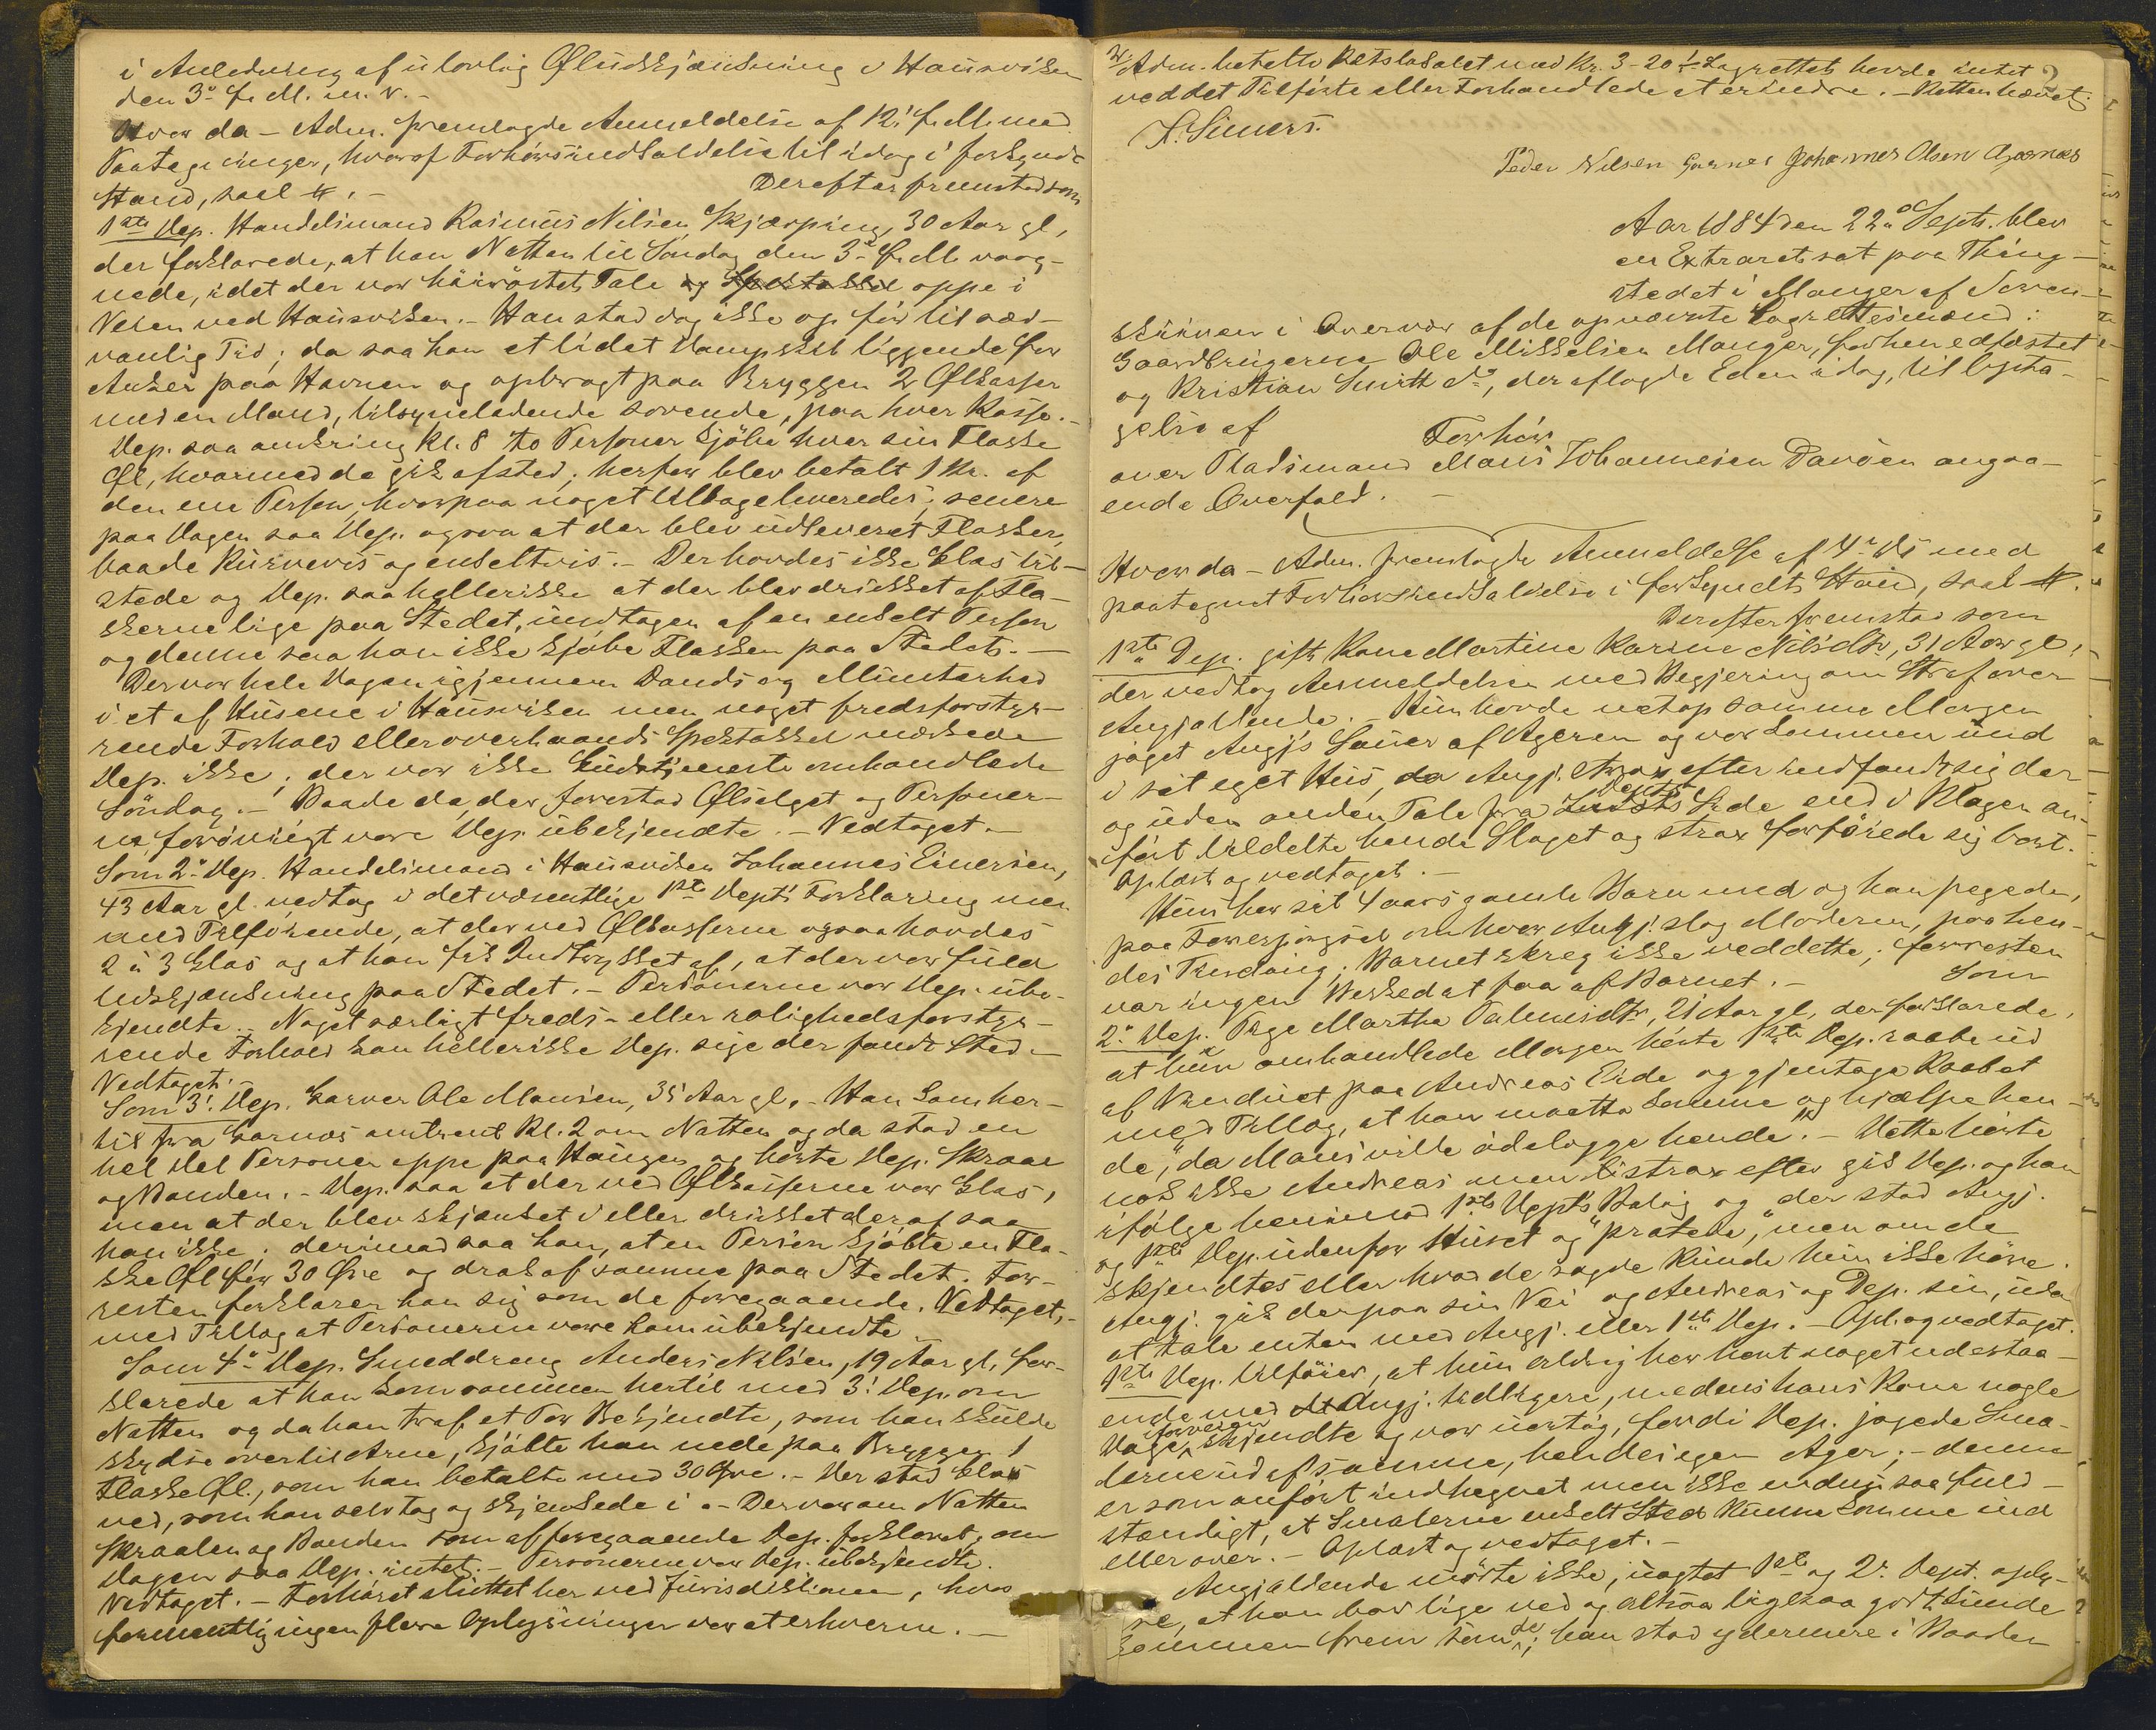 i Anledning af ulovlig Øludskjænkning i Hausviken
den 3de f. M. m. v. –
Hvor da – Adm. fremlagde Anmeldelse af 12. f. M. med
Paategninger, hvoraf Forhørsindkaldelse til idag i forkyndt
Stand, saal #. –
Derefter fremstod som
1ste Dep. Handelsmand Rasmus Nilsen Skjærping, 30 Aar gl,
der forklarede, at han Natten til Söndag den 3de f. M. vaag-
nede, idet der var höirøstet Tale og Spektakkel oppe i
Veien ved Hausviken. – Han stod dog ikke op för til sæd-
vanlig Tid; da saa han et lidet Dampskib liggende for
Anker paa Havnen og opbragt paa Bryggen 2 Ølkasser
med en Mand, tilsyneladende sovende, paa hver Kasse. –
Dep. saa omkring Kl. 8 to Personer kjöbe hver sin Flaske
Øl, hvormed de gik afsted; herfor blev betalt 1 Kr. af
den ene Person, hvorpaa noget tilbageleveredes; senere
paa Dagen saa Dep. ogsaa at der blev udleveret Flasker,
baade kurvevis og enkeltvis. – Der havdes ikke Glas til-
stede og Dep. saa heller ikke at der blev drukket af Fla-
skerne lige paa Stedet, undtagen af en enkelt Person
og denne saa han ikke kjöbe Flasken paa Stedet. –
Der var hele Dagen igjennem Dands og Munterhed
i et af Husene i Hausviken men noget fredsforstyr-
rende Forhold eller overhaands Spektakkel mærkede
Dep. ikke; der var ikke Gudstjeneste omhandlede
Söndag. – Baade de, der forestod Ølsalget og Personer-
ne forövrigt vare Dep. ubekjendte. – Vedtaget. –
Som 2de Dep. Handelsmand i Hausviken Johannes Einersen,
43 Aar gl. vedtog i det væsentlige 1ste Dept's Forklaring men
med Tilföiende, at der ved Ølkasserne ogsaa havdes
2 à 3 Glas og at han fik Indtrykket af, at der var fuld
Udskjænkning paa Stedet. – Personerne var Dep. ube-
kjendte. – Noget særligt freds- eller rolighedsforstyr-
rende Forhold kan heller ikke Dep. sige der fandt Sted. –
Vedtaget.
Som 3. Dep. Garver Ole Monsen, 35 Aar gl. – Han kom her-
til fra Garnæs omtrent Kl. 2 om Natten og da stod en
hel Del Personer oppe paa Haugen og hörte Dep. Skraal
og Banden. – Dep. saa at der ved Ølkasserne var Glas,
men at der blev skjænket i eller drukket deraf saa
han ikke; derimod saa han, at en Person kjöbte en Fla-
ske Øl for 30 Øre og drak af samme paa Stedet. For-
resten forklarer han sig som de foregaaende. Vedtaget, –
med Tillæg at Personerne vare ham ubekjendte. –
Som 4de Dep. Smeddreng Anders Nilsen, 19 Aar gl, for-
klarede at han kom sammen hertil med 3. Dep. om
Natten og da han traf et Par Bekjendte, som han skulde
skydse over til Arne, kjöbte han nede paa Bryggen 1
Flaske Øl, som han betalte med 30 Øre. – Der stod Glas
ved, som han selv tog og skjenkede i. – Der var om Natten
Skraalen og Banden som af foregaaende Dep. forklaret; om
Dagen saa Dep. intet. – Personerne var Dep. ubekjendte.
Vedtaget. – Forhöret sluttet her ved Jurisdiktionen, hvor
formentlig ingen flere Oplysninger var at erhverve. –
Adm. betalte Retslokalet med Kr. 3-20 Lagrettet havde intet
ved det Tilførte eller Forhandlede at erindre. – Retten hævet.
Peder Nilsen Garnes Johannes Olsen Garnæs
Aar 1884 den 22de Septr. blev
en Extraret sat paa Thing-
stedet i Manger af Soren-
skriveren i Overvær af de opnævnte Lagrettesmænd:
Gaardbrugerne Ole Mikkelsen Manger, forhen edfæstet
og Kristian Smitt do, der aflagde Eden idag, til Opta-
gelse af
Forhör
over Pladsmand Mons Johannesen Davöen angaa-
ende Overfald. –
Hvor da – Adm. fremlagde Anmeldelse af 4de ds med
paategnet Forhørsindkaldelse i forkyndt Stand, saal #.
Derefter fremstod som
1ste Dep. gift Kone Martine Karine Nilsdtr, 31 Aar gl,
der vedtog Anmeldelsen med Begjering om Straf over
Angjældende. – Hun havde netop samme Morgen
jaget Angj's Sauer af Ageren og var kommen ind
i sit eget Hus, da Angj. strax efter indfandt sig der
og uden anden Tale fra Dept's Side end i Klagen an-
fört tildelte hende Slaget og strax forföiede sig bort.
Oplæst og vedtaget. –
Hun har sit 4 aars gamle Barn med og han pegede,
paa Forespörgsel om hvor Angj. slog Moderen, paa hen-
des Tinding; Barnet skreg ikke ved dette; forresten
var ingen Besked at faa af Barnet. –
Som
2. Dep. Pige Martha Salmonsdtr, 21 Aar gl, der forklarede,
at hun omhandlede Morgen hörte 1ste Dep. raabe ud
af Vinduet paa Andreas Eide og gjentage Raabet
med Tillæg, at han maatte komme og hjælpe hen-
de, "da Mons vilde ödelægge hende". – Dette hörte
nok ikke Andreas men strax efter gik Dep. og han
ifölge henimod 1ste Dept's Bolig og der stod Angj.
og 1ste Dep. udenfor Huset og "pratede", men om de
skjendtes eller hvad de sagde kunde hun ikke höre.
Angj. gik derpaa sin Vei og Andreas og Dep. sin, uden
at tale enten med Angj. eller 1ste Dep. – Opl. og vedtaget.
1ste Dep. tilföier, at hun aldrig har havt noget udestaa-
ende med Angj. tidligere, medens hans Kone nogle
Dage forveien skjendte og var uartig, fordi Dep. jagede Sma-
lerne ud af samme, hendes egen Ager; – denne
er som anfört indhegnet men ikke endnu saa fuld-
stændigt, at Smalerne enkelt Sted kunne komme ind
eller over. – Oplæst og vedtaget. –
Angjældende mödte ikke, uagtet 1ste og 2. Dept. oply-
se, at han bor lige ved og altsaa ligesaa godt kunde
kommen frem som de; han stod ydermere i Baaden